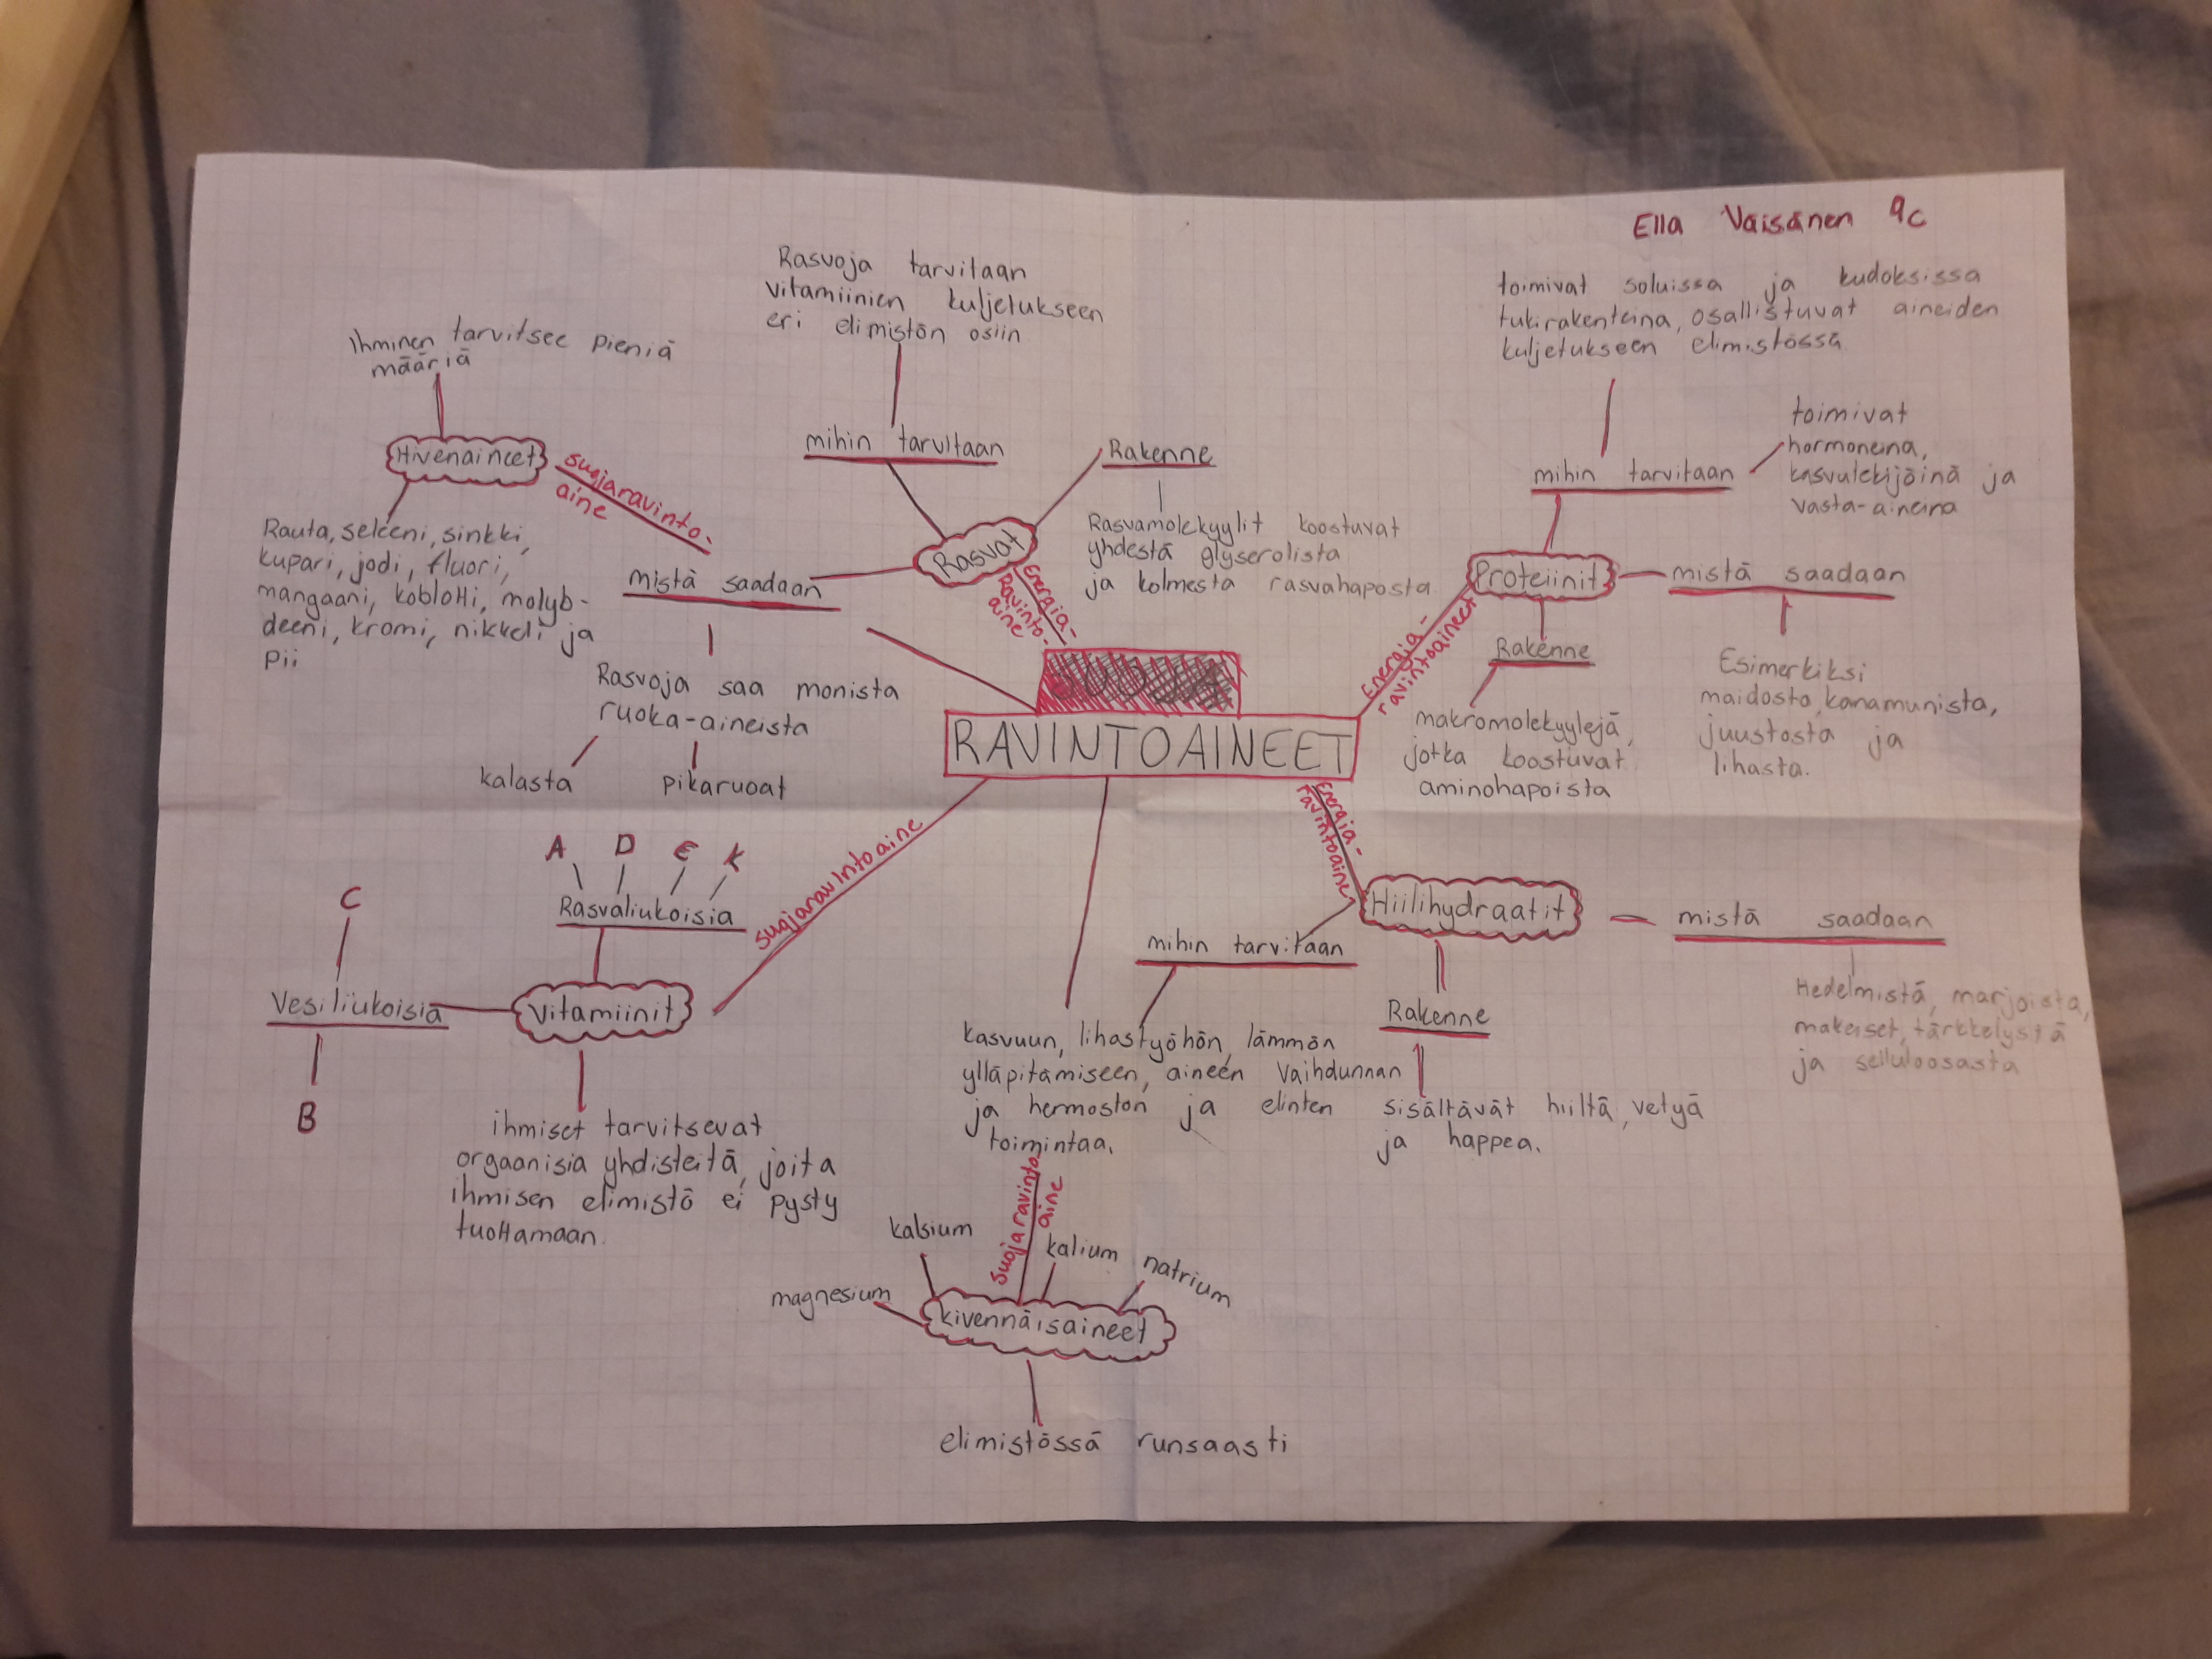 Ella Väisänen 9c
Rasvoja tarvitaan
vitamiinien kuljetukseen
eri elimistön osiin
mihin tarvitaan
Rakenne
Rasvamolekyylit koostuvat
yhdestä glyserolista
ja kolmesta rasvahaposta
Rasvat
Energia-
Ravinto-
aine
mistä saadaan
Rasvoja saa monista
ruoka-aineista
kalasta
pikaruoat
ihminen tarvitsee pieniä
määriä
Hivenaineet
suojaravinto-
aine
Rauta, seleeni, sinkki,
kupari, jodi, fluori,
mangaani, koblotti, molyb-
deeni, kromi, nikkeli ja
pii
toimivat soluissa ja kudoksissa
tukirakenteina, osallistuvat aineiden
kuljetukseen elimistössä
mihin tarvitaan
toimivat
hormoneina,
kasvutekijöinä ja
vasta-aineina
Proteiinit
mistä saadaan
Esimerkiksi
maidosta, kanamunista,
juustosta ja
lihasta.
Rakenne
makromolekyylejä,
jotka koostuvat
aminohapoista
Energia-
ravintoaineet
RAVINTOAINEET
Energia-
ravintoaine
Hiilihydraatit
mistä saadaan
Hedelmistä, marjoista,
makeiset, tärkkelystä
ja selluloosasta
mihin tarvitaan
kasvuun, lihastyöhön, lämmön
ylläpitämiseen, aineen vaihdunnan
ja hermoston ja elinten
toimintaa.
Rakenne
sisältävät hiiltä, vetyä
ja happea.
suojaravintoaine
A D E K
Rasvaliukoisia
C
Vesiliukoisia
B
Vitamiinit
ihmiset tarvitsevat
orgaanisia yhdisteitä, joita
ihmisen elimistö ei pysty
tuottamaan.
suojaravinto
aine
kalsium
kalium
natrium
magnesium
kivennäisaineet
elimistössä runsaasti